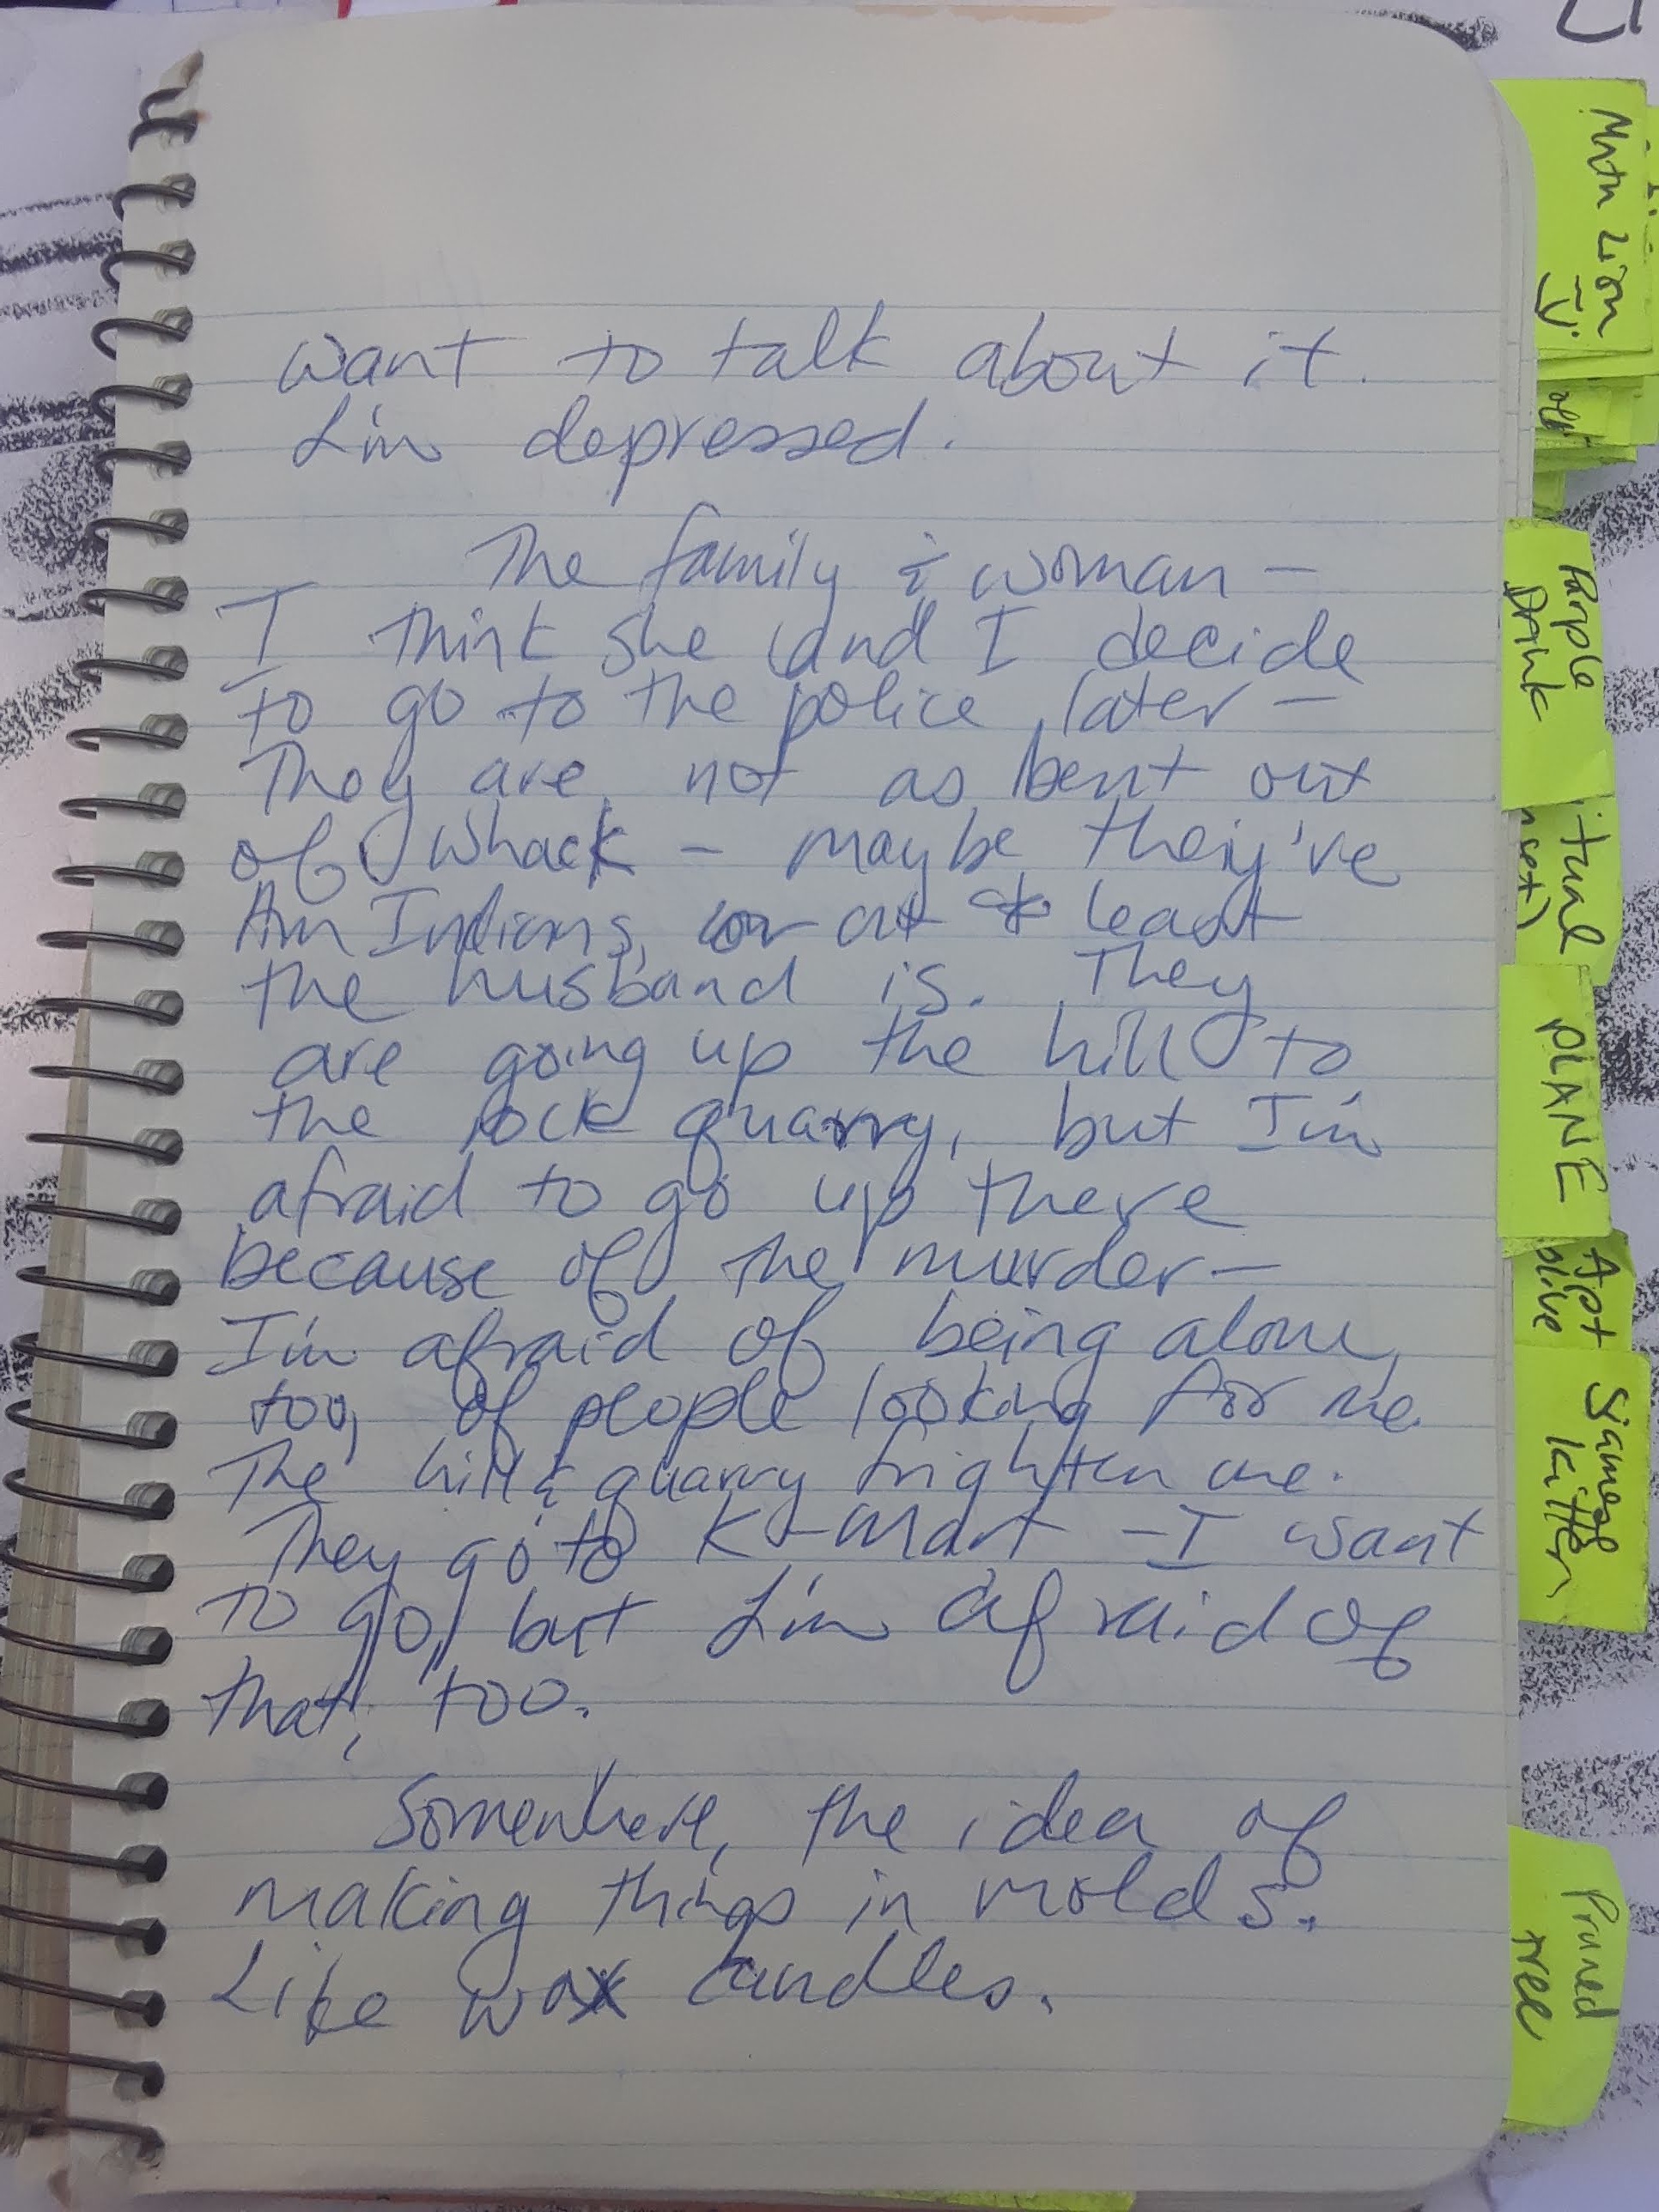 want to talk about it.
I'm depressed.
The family & woman –
I think she and I decide
to go to the police later –
They are not as bent out
of whack – maybe they've
Am Indians, or at least
the husband is. They
are going up the hill to
the rock quarry, but I'm
afraid to go up there
because of the murder –
I'm afraid of being alone,
too, of people looking for me.
The hill & quarry frighten me.
They go to K-Mart – I want
to go, but I'm afraid of
that, too.
Somewhere, the idea of
making things in molds.
Like wax candles.
Mntn Lion
Purple
Drink
itual
nset)
PLANE
Apt
olive
Siamese
kitten
Pruned
tree